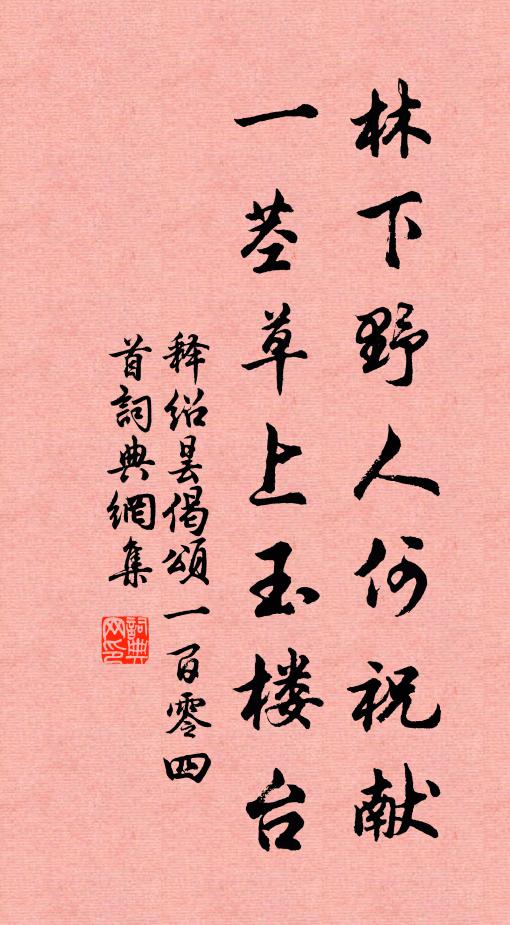 林下野人何祝献
一茎草上玉楼台
释绍昙偈颂一百零四
首詞典網集
詞典网印